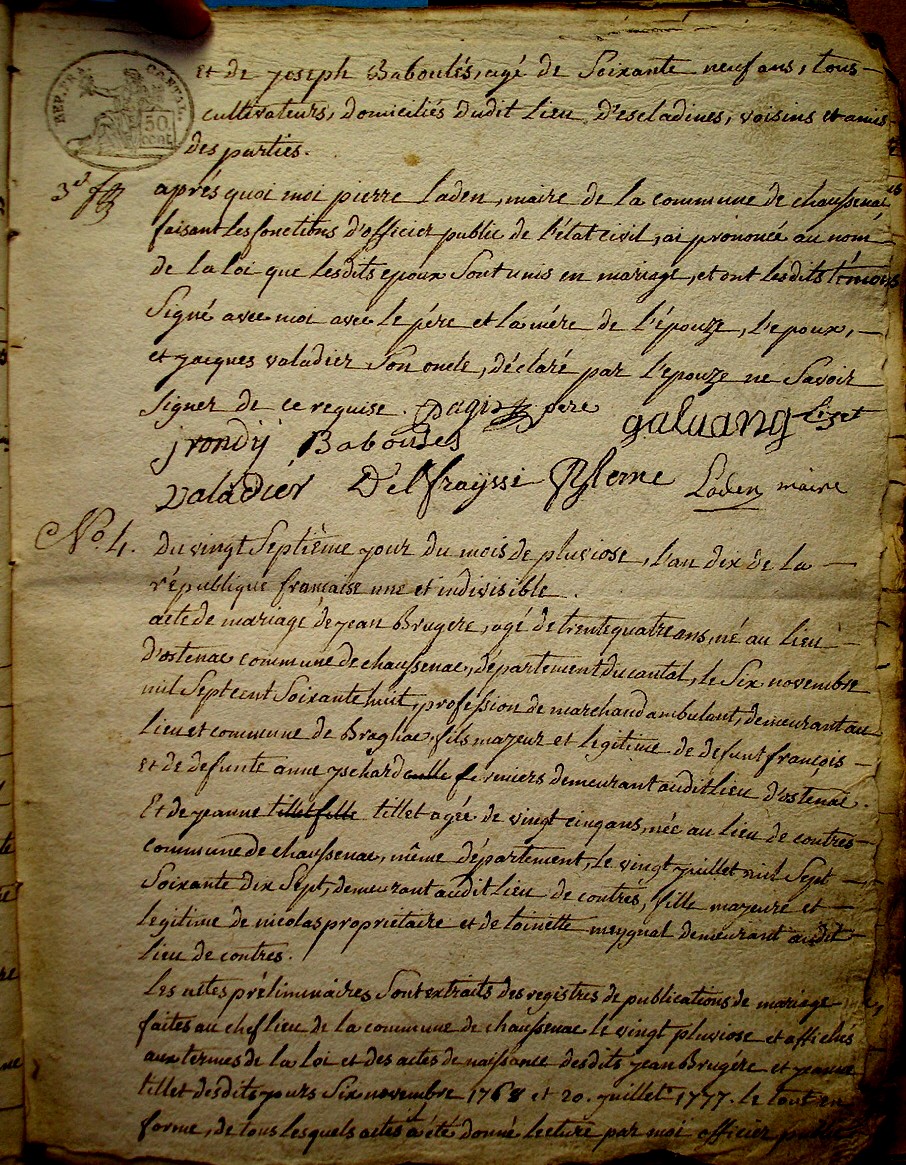 REP. FRA. CANTAL.
50
cent
Et de joseph Baboulés, agé de Soixante neuf ans, tous
cultivateurs, domiciliés dudit lieu D'escladines, voisins et amis
des parties.
3e
aprés quoi moi pierre Laden, maire de la commune de chaussenac
faisant les fonctions d'officier public de l'état civil, ai prononcé au nom
de la loi que lesdits epoux Sont unis en mariage, et ont lesdits témoins
Signé avec moi avec le pére et la mére de l'épouze, l'epoux,
et jacques valadier Son oncle, déclaré par l'epouze ne Savoir
Signer de ce requise. pagis pere galvaing lizet
j rondij Baboules
valadier Delfraÿssi Laden maire
No. 4. Du vingt Septième jour du mois de pluviose, l'an dix de la
république française une et indivisible.
acte de mariage de jean Brugere, agé de trente quatre ans, né au lieu
d'ostenac commune de chaussenac, département du cantal, le Six novembre
mil Sept cent Soixante huit, profession de marchand ambulant, demeurant au
lieu et commune de Braghac fils majeur et legitime de defunt françois
et de defunte anne yschard culle fermiers demeurant audit lieu d'ostenac.
Et de jeanne tillet fille tillet agée de vingt cinq ans, née au lieu de contres
commune de chaussenac, même département, le vingt juillet mil Sept
Soixante dix Sept, demeurant audit lieu de contrés, fille majeure et
legitime de nicolas propriétaire et de toinette meygnal demeurant audit
lieu de contres.
Les actes préliminaires Sont extraits des registres de publications de mariage
faites au chef lieu de la commune de chaussenac le vingt pluviose et affichés
aux termes de la loi et des actes de naissance desdits jean Brugére et jeanne
tillet desdits jours Six novembre 1768 et 20. juillet 1777. le tout en
forme, de tous lesquels actes a été donné lecture par moi officier public